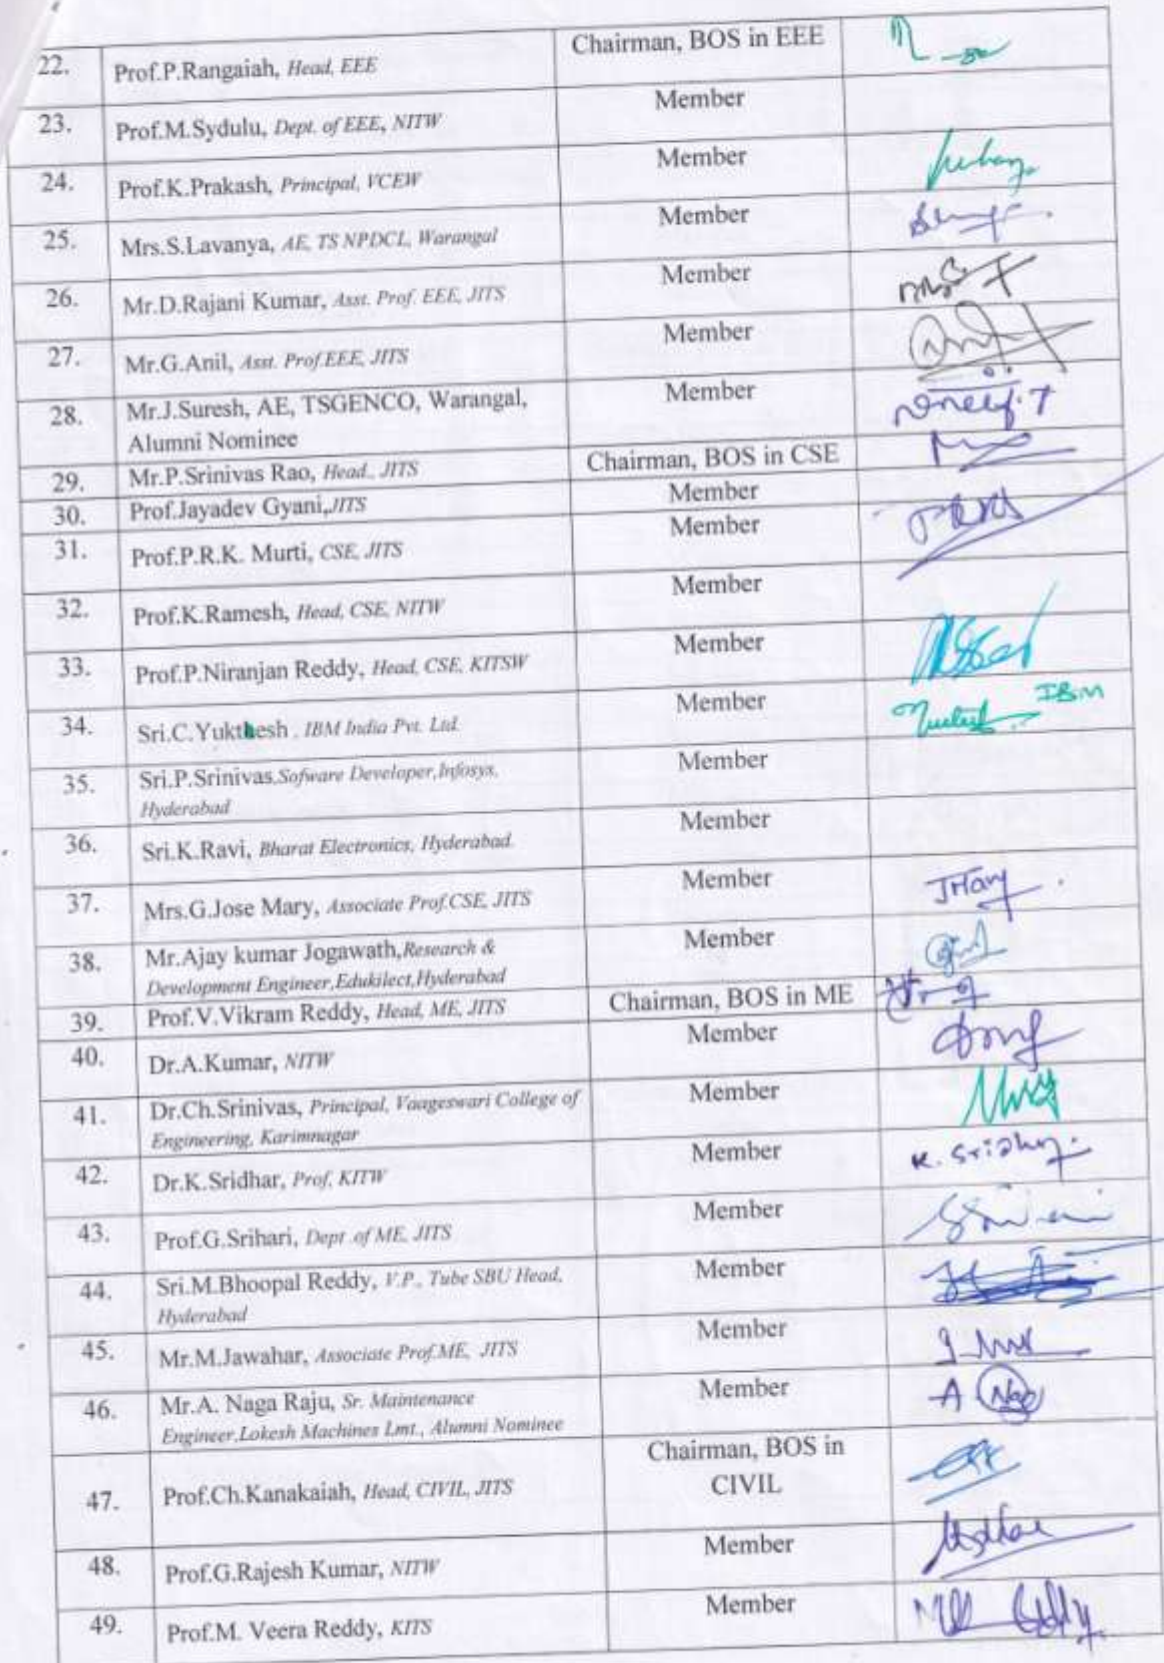 22. Prof.P.Rangaiah, Head, EEE Chairman, BOS in EEE
23. Prof.M.Sydulu, Dept. of EEE, NITW Member
24. Prof.K.Prakash, Principal, VCEW Member
25. Mrs.S.Lavanya, AE, TS NPDCL, Warangal Member
26. Mr.D.Rajani Kumar, Asst. Prof. EEE, JITS Member
27. Mr.G.Anil, Asst. Prof.EEE, JITS Member
28. Mr.J.Suresh, AE, TSGENCO, Warangal, Member
Alumni Nominee
29. Mr.P.Srinivas Rao, Head., JITS Chairman, BOS in CSE
30. Prof.Jayadev Gyani,JITS Member
31. Prof.P.R.K. Murti, CSE, JITS Member
32. Prof.K.Ramesh, Head, CSE, NITW Member
33. Prof.P.Niranjan Reddy, Head, CSE, KITSW Member
34. Sri.C.Yukthesh , IBM India Pvt. Ltd. Member IBM
35. Sri.P.Srinivas,Sofware Developer,Infosys, Member
Hyderabad
36. Sri.K.Ravi, Bharat Electronics, Hyderabad. Member
37. Mrs.G.Jose Mary, Associate Prof.CSE, JITS Member JMary
38. Mr.Ajay kumar Jogawath,Research & Member
Development Engineer,Edukilect,Hyderabad
39. Prof.V.Vikram Reddy, Head, ME, JITS Chairman, BOS in ME
40. Dr.A.Kumar, NITW Member
41. Dr.Ch.Srinivas, Principal, Vaageswari College of Member
Engineering, Karimnagar
42. Dr.K.Sridhar, Prof, KITW Member K. Sridhar
43. Prof.G.Srihari, Dept of ME, JITS Member
44. Sri.M.Bhoopal Reddy, V.P., Tube SBU Head, Member
Hyderabad
45. Mr.M.Jawahar, Associate Prof.ME, JITS Member
46. Mr.A. Naga Raju, Sr. Maintenance Member
Engineer,Lokesh Machines Lmt., Alumni Nominee
47. Prof.Ch.Kanakaiah, Head, CIVIL, JITS Chairman, BOS in
CIVIL
48. Prof.G.Rajesh Kumar, NITW Member
49. Prof.M. Veera Reddy, KITS Member